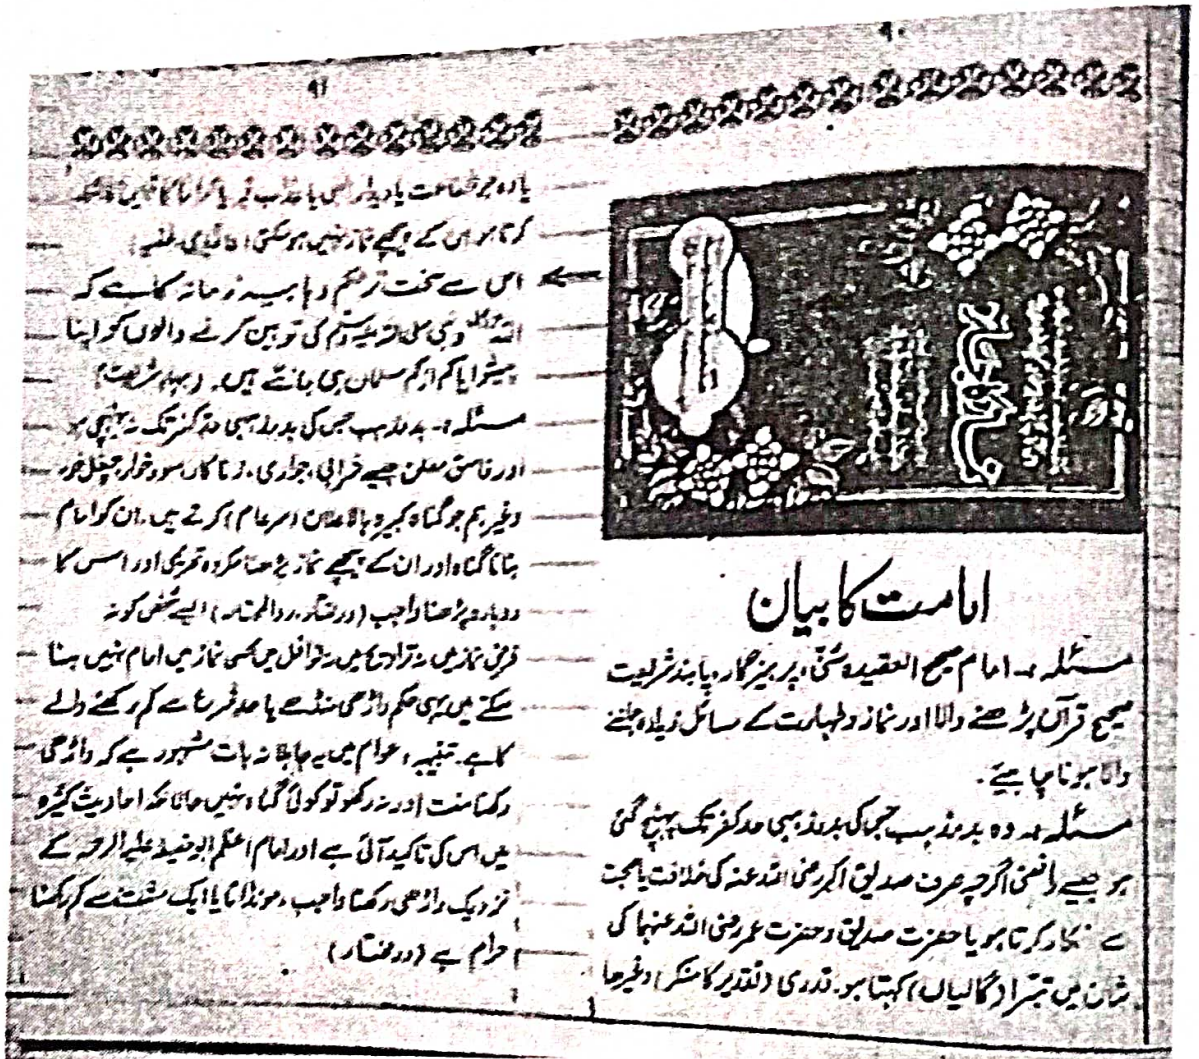 ۴۰
امامت کا بیان
مسئلہ :۔ امام صحیح العقیدہ سنی، پرہیزگار، پابند شریعت
صحیح قرآن پڑھنے والا اور نماز و طہارت کے مسائل زیادہ جاننے
والا ہونا چاہیئے۔
مسئلہ :۔ وہ بدمذہب جس کی بدمذہبی حد کفر تک پہنچ گئی
ہو جیسے رافضی اگرچہ صرف صدیق اکبر رضی اللہ عنہ کی خلافت یا صحبت
سے انکار کرتا ہو یا حضرت صدیق و حضرت عمر رضی اللہ عنہما کی
شان میں تبرا (گالیاں) کہتا ہو۔ قدری (تقدیر کا منکر) وغیرہا
۴۱
یا وہ جو شفاعت یا دیدار الٰہی یا عذاب قبر یا کراما کاتبین کا انکار
کرتا ہو اس کے پیچھے نماز نہیں ہوسکتی
اس سے سخت تر حکم وہابیہ زمانہ کا ہے کہ
اللہ عزوجل و نبی صلی اللہ علیہ وسلم کی توہین کرنے والوں کو اپنا
پیشوا یا کم از کم مسلمان ہی جانتے ہیں۔ (بہار شریعت)
مسئلہ :۔ بدمذہب جس کی بدمذہبی حد کفر تک نہ پہنچی ہو
اور فاسق معلن جیسے شرابی، جواری، زنا کار، سود خوار، چغل خور
وغیرہم جو گناہ کبیرہ بالاعلان (سرعام) کرتے ہیں۔ ان کو امام
بنانا گناہ اور ان کے پیچھے نماز پڑھنا مکروہ تحریمی اور اس کا
دوبارہ پڑھنا واجب (درمختار، ردالمحتار) ایسے شخص کو نہ
فرض نماز میں نہ تراویح میں نہ نوافل میں کسی نماز میں امام نہیں بنا
سکتے ہیں یہی حکم داڑھی منڈے یا حد شرع سے کم رکھنے والے
کا ہے۔ تنبیہ، عوام میں یہ جاہلانہ بات مشہور ہے کہ داڑھی
رکھنا سنت اور نہ رکھو تو کوئی گناہ نہیں حالانکہ احادیث کثیرہ
میں اس کی تاکید آئی ہے اور امام اعظم ابوحنیفہ علیہ الرحمہ کے
نزدیک داڑھی رکھنا واجب، مونڈانا یا ایک مشت سے کم رکھنا
حرام ہے (درمختار)